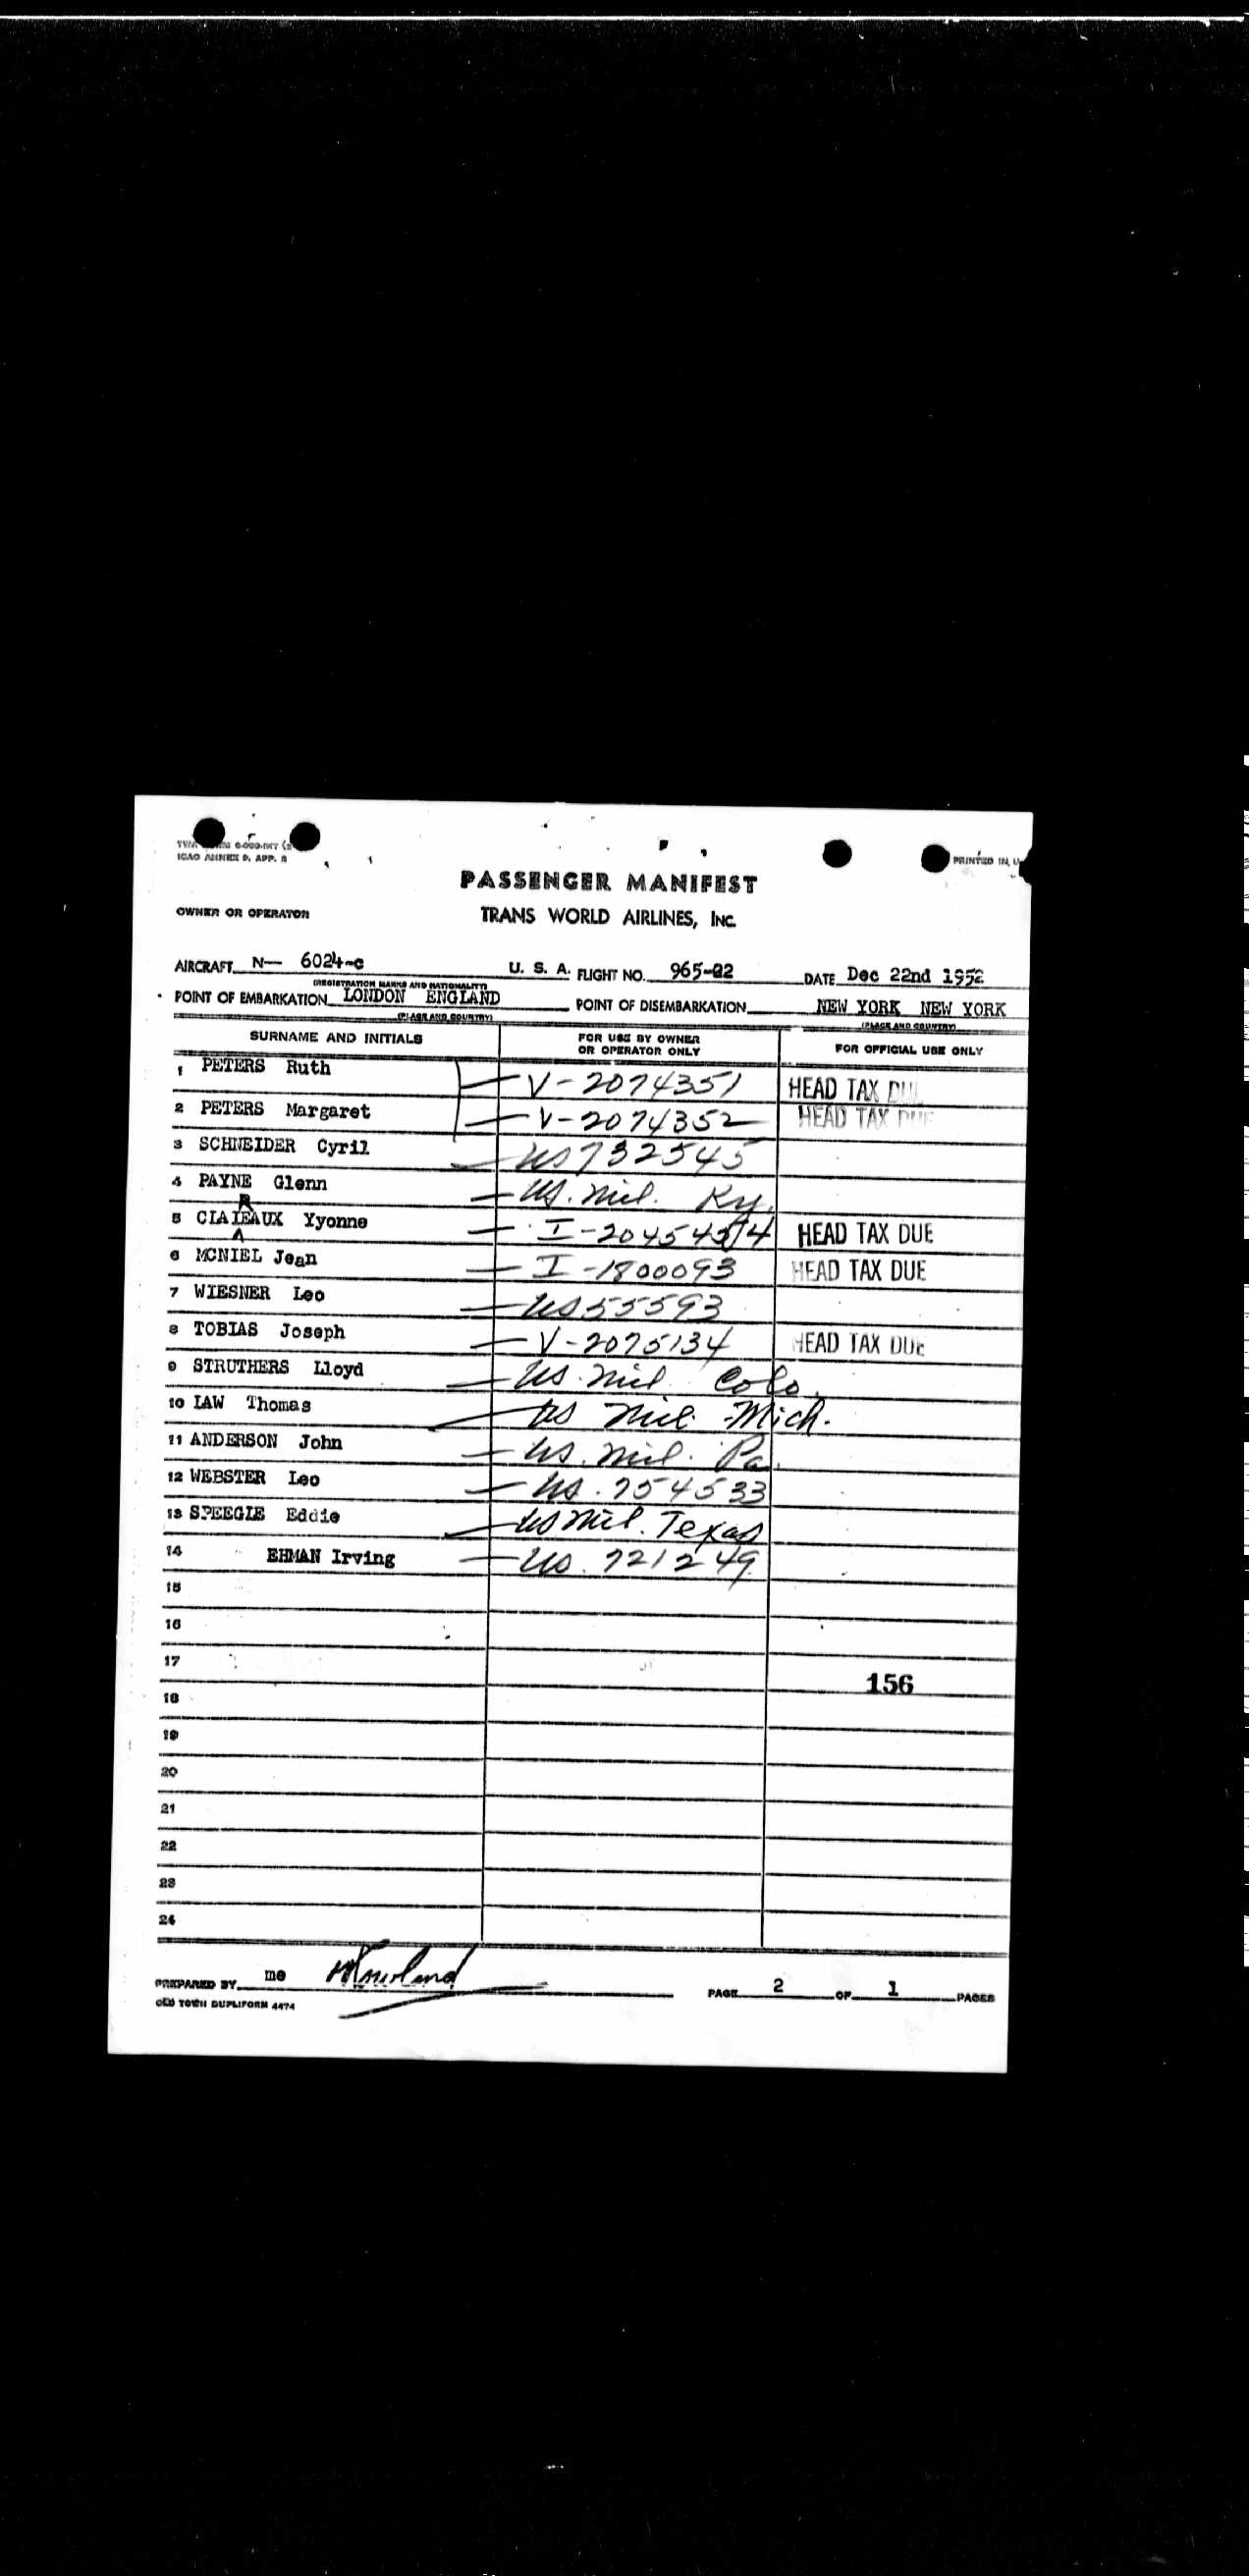 ICAO ANNEX 9. APP. 5
PRINTED IN U
PASSENGER MANIFEST
OWNER OR OPERATOR TRANS WORLD AIRLINES, INC.
AIRCRAFT N— 6024-C U. S. A. FLIGHT NO. 965-22 DATE Dec 22nd 1952
(REGISTRATION MARKS AND NATIONALITY)
POINT OF EMBARKATION LONDON ENGLAND POINT OF DISEMBARKATION NEW YORK NEW YORK
(PLACE AND COUNTRY) (PLACE AND COUNTRY)
SURNAME AND INITIALS FOR USE BY OWNER OR OPERATOR ONLY FOR OFFICIAL USE ONLY
1 PETERS Ruth V-2074351 HEAD TAX DUE
2 PETERS Margaret V-2074352 HEAD TAX DUE
3 SCHNEIDER Cyril US 732545
4 PAYNE Glenn US. Mil. Ky.
5 CLAIREAUX Yvonne I- HEAD TAX DUE
6 MCNIEL Jean I-1800093 HEAD TAX DUE
7 WIESNER Leo US 55593
8 TOBIAS Joseph V-2075134 HEAD TAX DUE
9 STRUTHERS Lloyd US. Mil Colo.
10 LAW Thomas US Mil. Mich.
11 ANDERSON John US. Mil. Pa.
12 WEBSTER Leo US. 754533
13 SPEEGLE Eddie US Mil. Texas
14 EHMAN Irving US. 721249
15
16
17
156
18
19
20
21
22
23
24
PREPARED BY me PAGE 2 OF 1 PAGES
OLD TOWN DUPLIFORM 4474